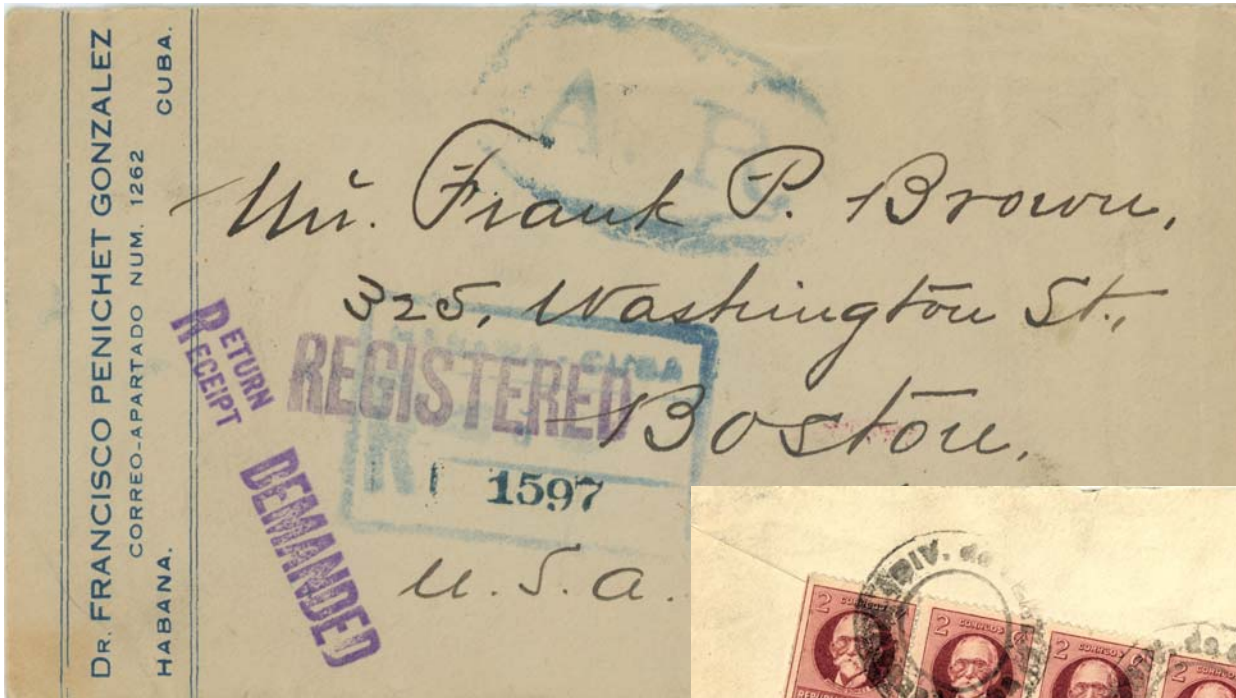 DR. FRANCISCO PENICHET GONZALEZ
CORREO-APARTADO NUM. 1262
HABANA. CUBA.
A. R.
Mr. Frank P. Brown,
325, Washington St.,
Boston.
U. S. A.
RETURN
RECEIPT
DEMANDED
REGISTERED
CUBA
R
1597
DIV. de
2 CORREOS 2
2 CORREOS
2 CORREOS
2 CORREOS